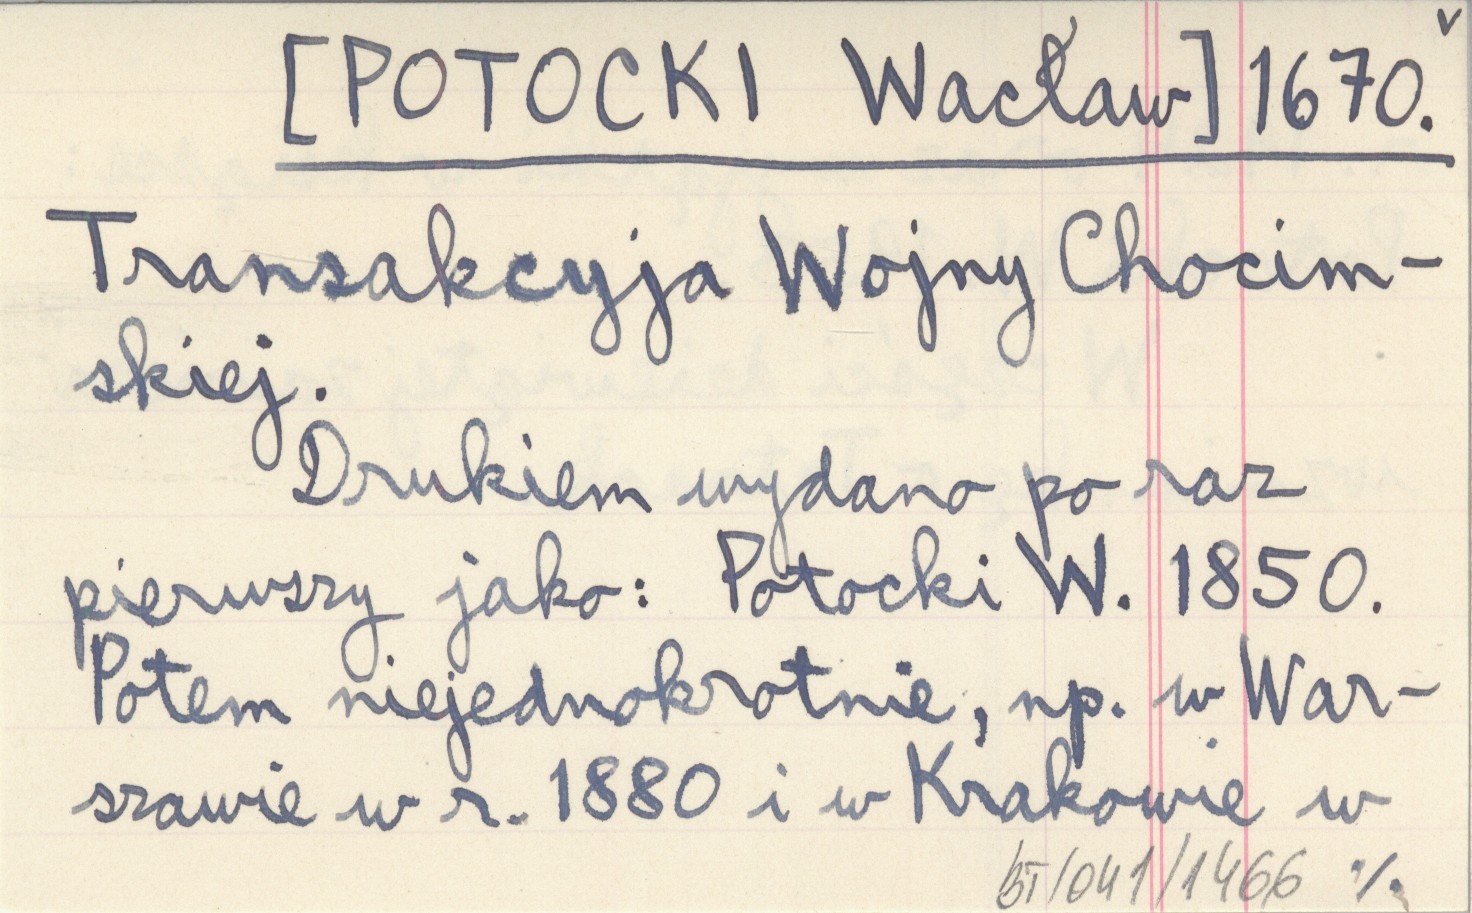 [POTOCKI Wacław] 1670. v
Transakcyja Wojny Chocim-
skiej.
Drukiem wydano po raz
pierwszy jako: Potocki W. 1850.
Potem niejednokrotnie, np. w War-
szawie w r. 1880 i w Krakowie w
BT/041/1466 ·/.